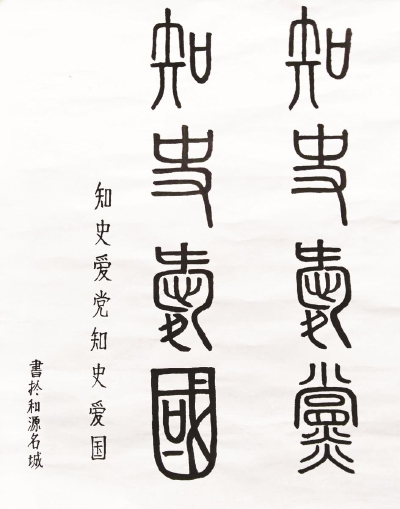 知史愛黨
知史愛國
知史爱党知史爱国
書於和源名城